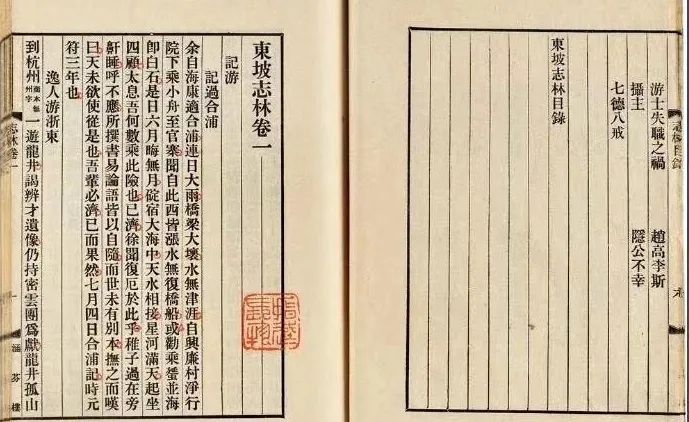 游士失職之禍 趙高李斯
攝主 隱公不幸
七德八戒
東坡志林目錄
東坡志林卷一
記游
記過合浦
余自海康適合浦連日大雨橋梁大壞水無津涯自興廉村淨行
院下乘小舟至官寨聞自此西皆漲水無復橋船或勸乘蜑並海
即白石是日六月晦無月碇宿大海中天水相接星河滿天起坐
四顧太息吾何數乘此險也已濟徐聞復厄於此乎稚子過在旁
鼾睡呼不應所撰書易論語皆以自隨而世未有別本撫之而嘆
曰天未欲使從是也吾輩必濟已而果然七月四日合浦記時元
符三年也
逸人游浙東
到杭州一遊龍井謁辨才遺像仍持密雲團爲獻龍井孤山
志林卷一
涵芬樓